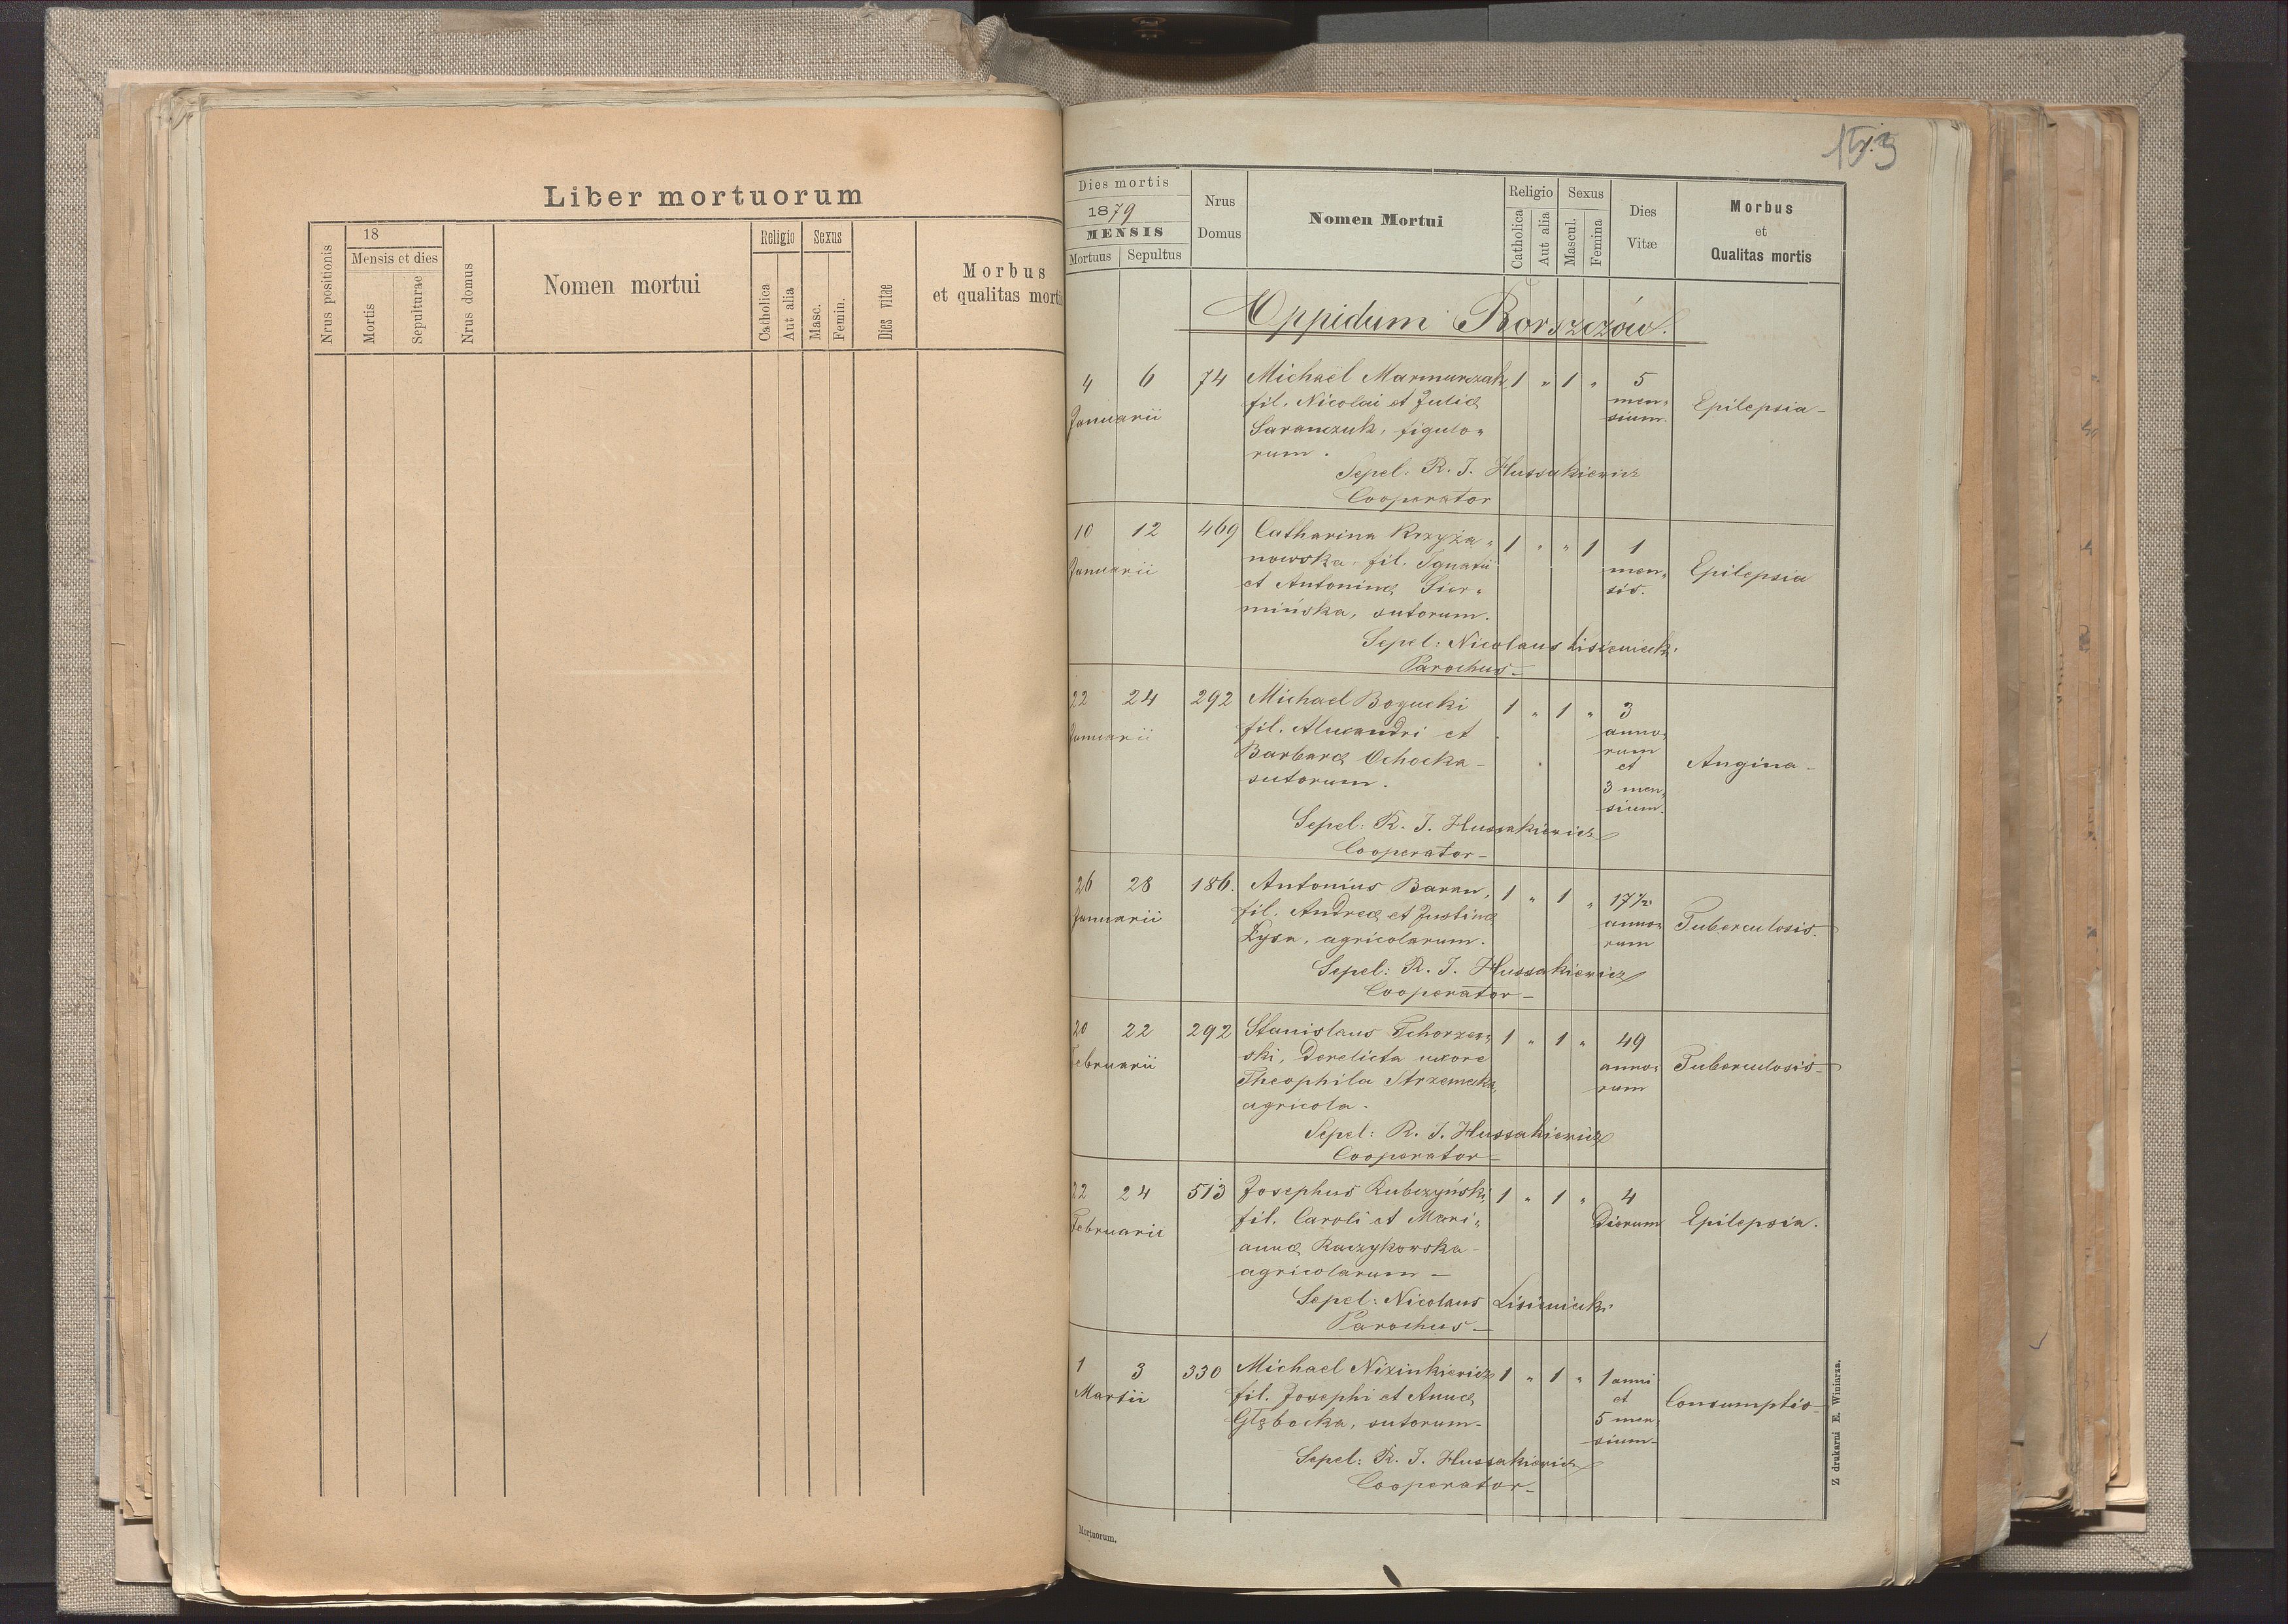 Liber mortuorum
Nrus positionis
18
Mensis et dies
Mortis
Sepulturae
Nrus domus
Nomen mortui
Religio
Catholica
Aut alia
Sexus
Masc.
Femin.
Dies vitae
Morbus
et qualitas mortis
153
Dies mortis
1879
MENSIS
Mortuus Sepultus
Nrus
Domus
Nomen Mortui
Religio
Catholica
Aut alia
Sexus
Mascul.
Femina
Dies
Vitæ
Morbus
et
Qualitas mortis
Oppidum Borszczów.
4 6 74 Michaël Marmurczak, 1 " 1 " 5
Januarii fil. Nicolai et Juliæ men- Epilepsia-
Saranczuk, figulo- sium.
rum.
Sepel: R. J. Hussakiewicz
Cooperator
10 12 469 Catharina Krzyża- 1 " " 1 1
Januarii nowska, fil. Ignatii men- Epilepsia
et Antoninæ Sier- sis.
mińska, sutorum.
Sepel: Nicolaus Lisieniecki
Parochus-
22 24 292 Michael Bogucki 1 " 1 " 3
Januarii fil. Alexandri et anno-
Barbaræ Ochocka- rum
sutorum. et Angina-
3 men-
sium.
Sepel: R. J. Hussakiewicz
Cooperator-
26 28 186. Antonius Baran, 1 " 1 " 17½
Januarii fil. Andreæ et Justinæ anno- Tuberculosis.
Łysa, agricolarum. rum
Sepel: R. J. Hussakiewicz
Cooperator-
20 22 292 Stanislaus Tchorzew- 1 " 1 " 49
Februarii ski, derelicta uxore anno- Tuberculosis-
Theophila Strzemecka, rum
agricola-
Sepel: R. J. Hussakiewicz
Cooperator-
22 24 513 Josephus Kubczyński, 1 " 1 " 4
Februarii fil. Caroli et Mari- Dierum Epilepsia.
annæ Raczykowska-
agricolarum-
Sepel: Nicolaus Lisieniecki
Parochus-
1 3 330 Michael Nizinkiewicz 1 " 1 " 1 anni
Martii fil. Josephi et Annæ et Consumptio-
Głębocka, sutorum- 5 men-
sium-
Sepel: R. J. Hussakiewicz
Cooperator-
Z drukarni E. Winiarza.
Mortuorum.